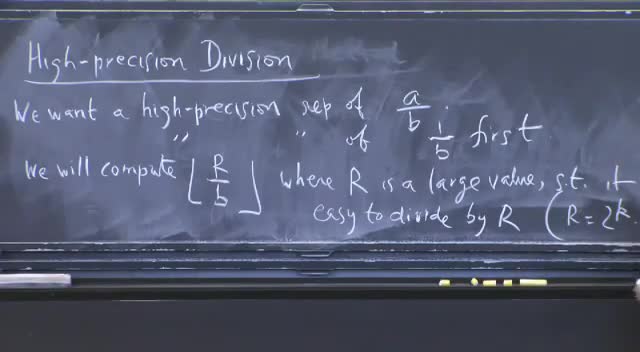 High-precision Division
We want a high-precision rep of a/b.
" " of 1/b first
We will compute ⌊R/b⌋ where R is a large value, s.t. it
easy to divide by R (R = 2^k